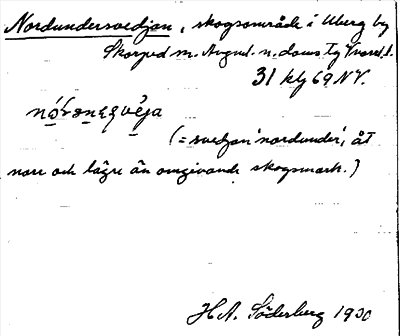 Nordundersvedjan, skogsområde i Uberg by
Skorped sn. Ångml. n. doms Tg Vnorrl. l.
31 klg 69 NV.
(= svedjan 'nordunder', åt
norr och lägre än omgivande skogsmark.)
H.A. Söderberg 1930